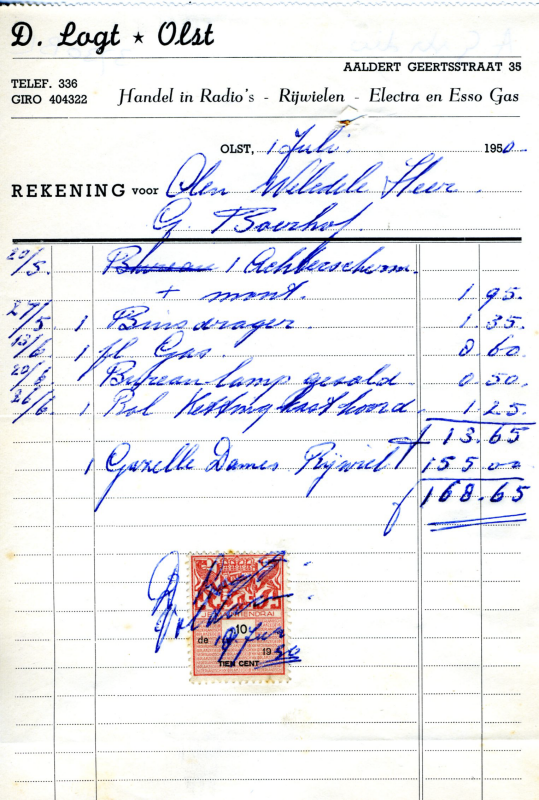 D. Logt ★ Olst
AALDERT GEERTSSTRAAT 35
TELEF. 336
GIRO 404322
Handel in Radio's - Rijwielen - Electra en Esso Gas
OLST, 1 Juli 1950.
REKENING voor Den Weledele Heer.
G. Boerhof.
20/5. Bureau 1 Achterscherm.
+ mont. 1 95.
27/5 1 Buisdrager. 1.35.
13/6. 1 fl Gas. 0 60.
20/6. Bureau lamp gesold. 0.50.
26/6. 1 Rol Ketting 1.25.
f 13.65
1 Gazelle Dames Rijwiel 155 00
f 168.65
Voldaan
10
de 19 50
TIEN CENT